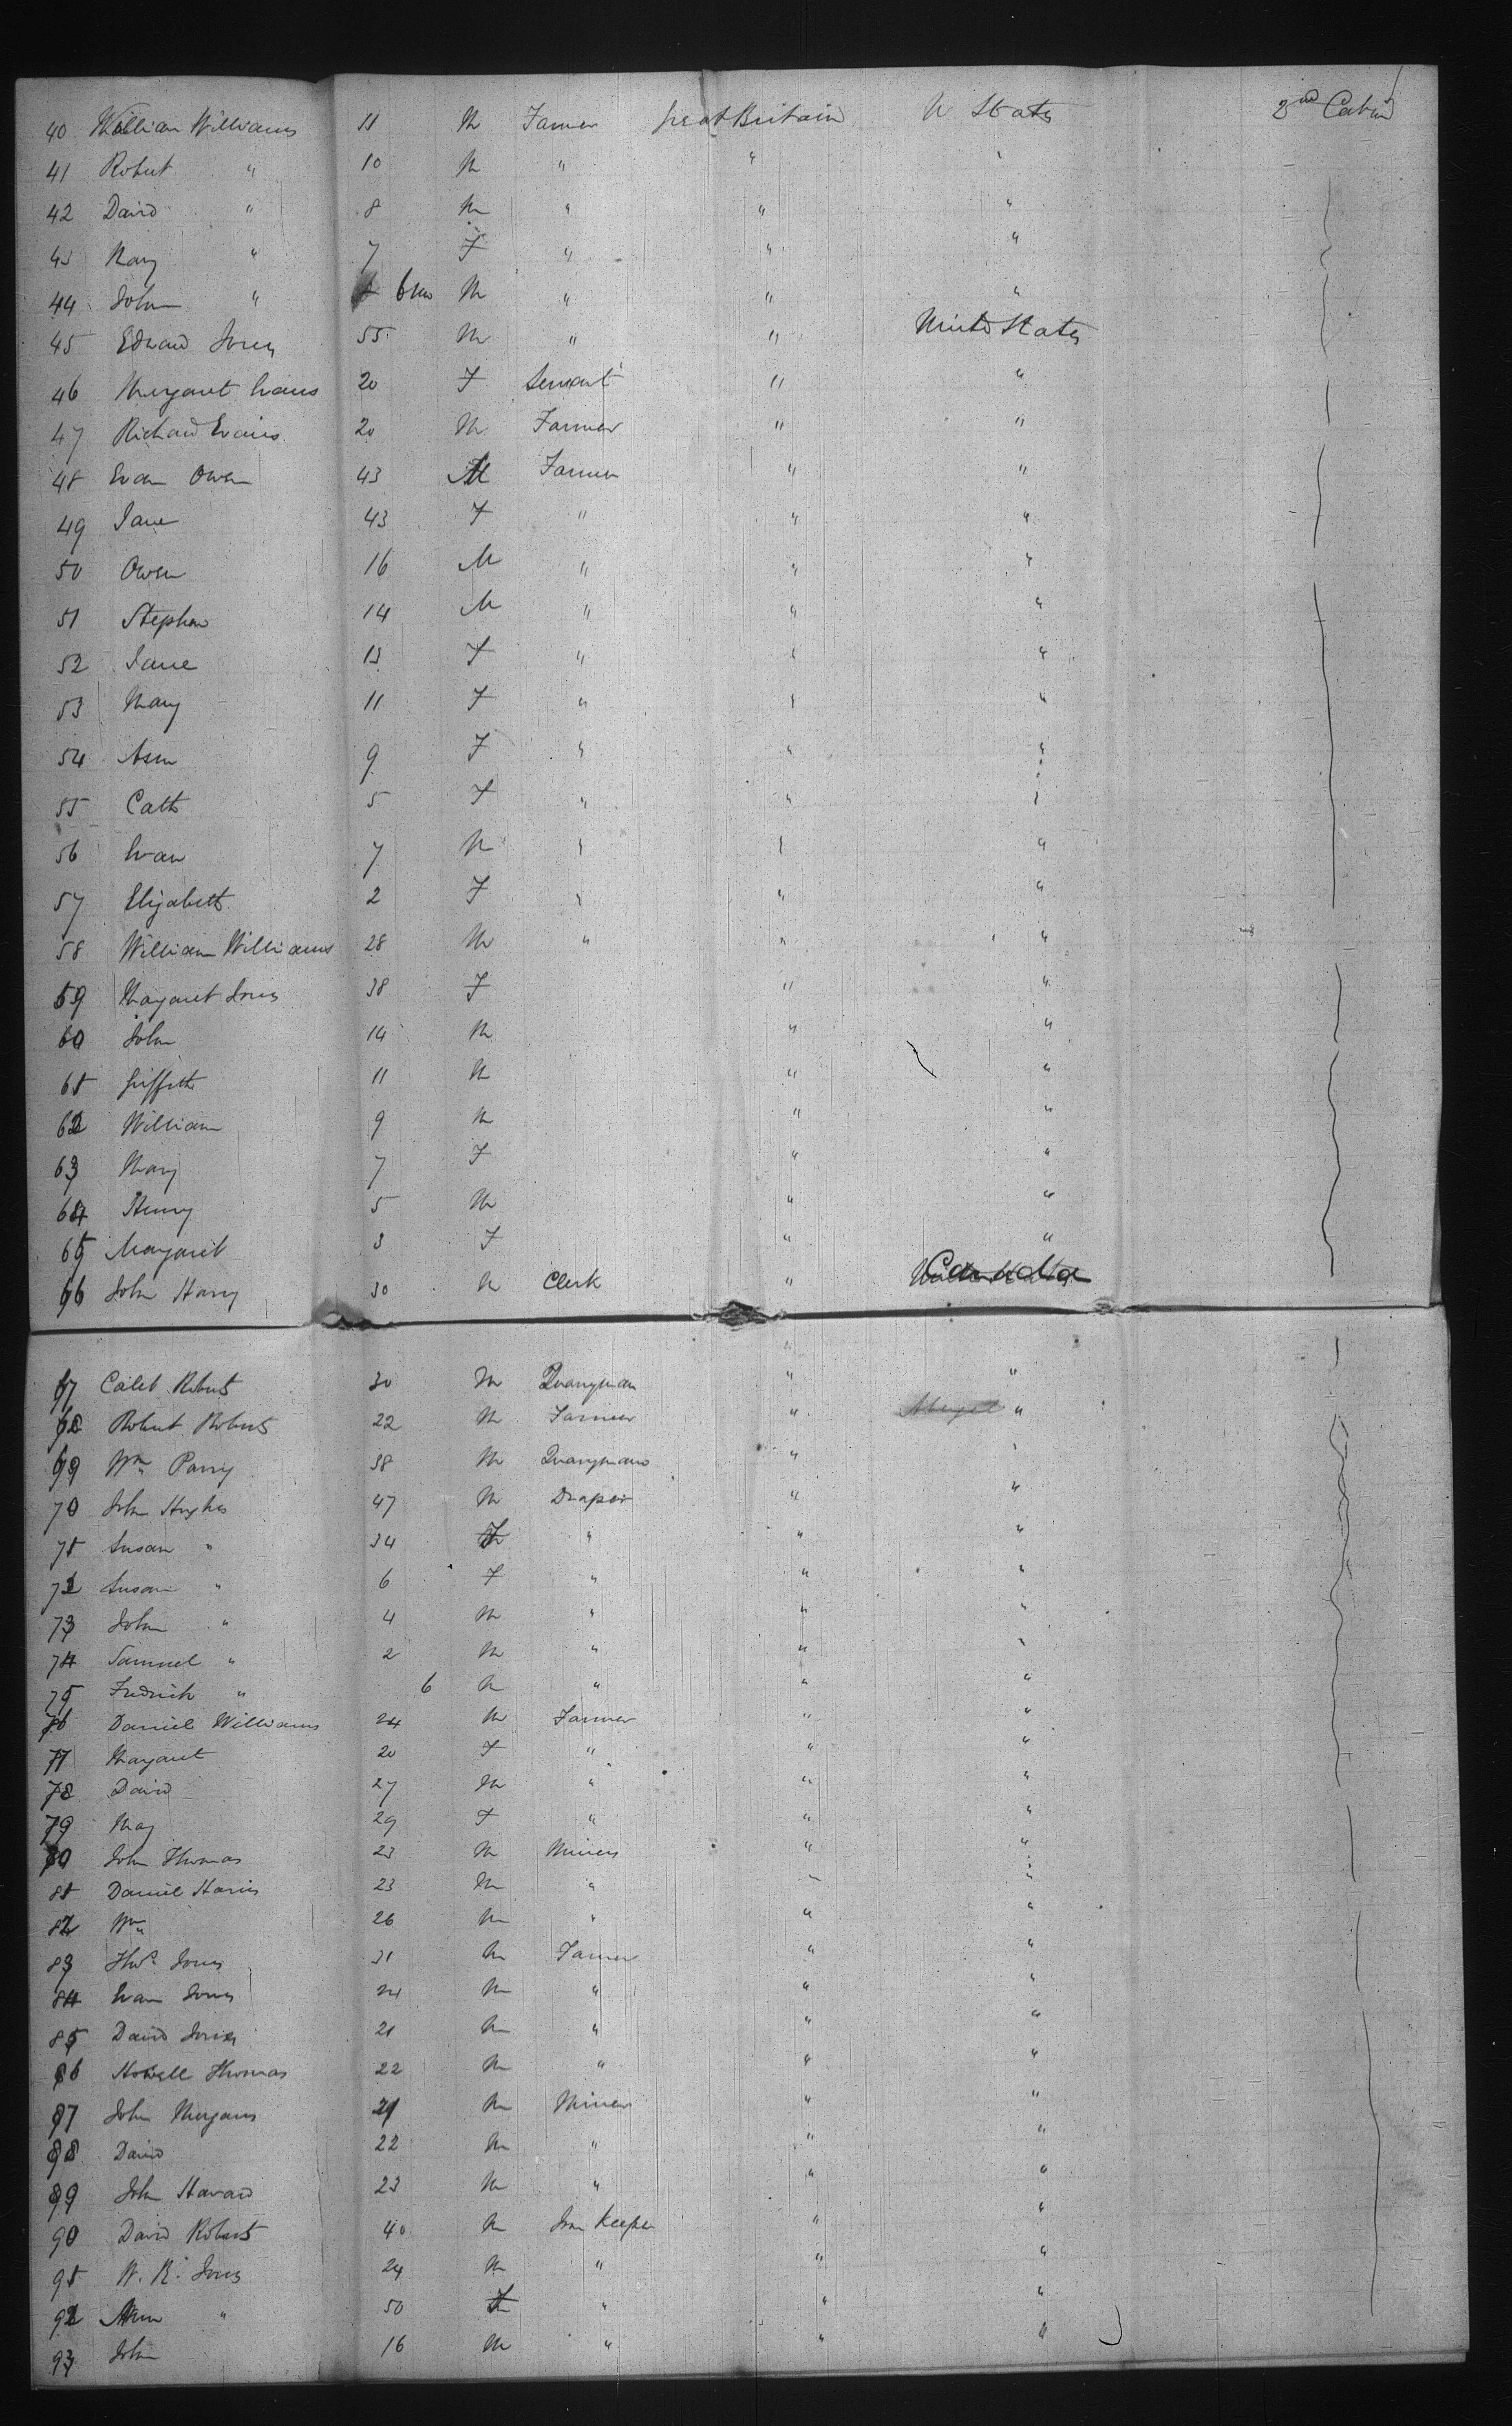 40 William Williams 11 M Farmer Great Britain U States 2nd Cabin
41 Robert " 10 M " " "
42 David " 8 M " " "
43 Mary " 7 F " " "
44 John " 6 mo M " " "
45 Edward Jones 55 M " " United States
46 Margaret Evans 20 F Servant " "
47 Richard Evans 20 M Farmer " "
48 Evan Owen 43 M Farmer " "
49 Jane 43 F " " "
50 Owen 16 M " " "
51 Stephen 14 M " " "
52 Jane 13 F " " "
53 Mary 11 F " " "
54 Ann 9 F " " "
55 Cath 5 F " " "
56 Evan 7 M " " "
57 Elizabeth 2 F " " "
58 William Williams 28 M " " "
59 Margaret Jones 38 F " "
60 John 14 M " "
61 Griffith 11 M " "
62 William 9 M " "
63 Mary 7 F " "
64 Henry 5 M " "
65 Margaret 3 F " "
66 John Harry 30 M Clerk " Canada
67 Caleb Roberts 30 M Quarryman " "
68 Robert Roberts 22 M Farmer " "
69 Wm Parry 38 M Quarryman " "
70 John Hughes 47 M Draper " "
71 Susan " 34 F " " "
72 Susan " 6 F " " "
73 John " 4 M " " "
74 Samuel " 2 M " " "
75 Fredrick " 6 M " " "
76 Daniel Williams 24 M Farmer " "
77 Margaret 20 F " " "
78 David 27 M " " "
79 May 29 F " " "
80 John Thomas 23 M Miners " "
81 Daniel Harris 23 M " " "
82 Wm " 26 M " " "
83 Thos Jones 31 M Farmer " "
84 Evan Jones 21 M " " "
85 David Jones 21 M " " "
86 Howell Thomas 22 M " " "
87 John Morgans 21 M Miner " "
88 David 22 M " " "
89 John Havard 23 M " " "
90 David Roberts 40 M Inn Keeper " "
91 W. R. Jones 24 M " " "
92 Ann " 50 F " " "
93 John 16 M " " "